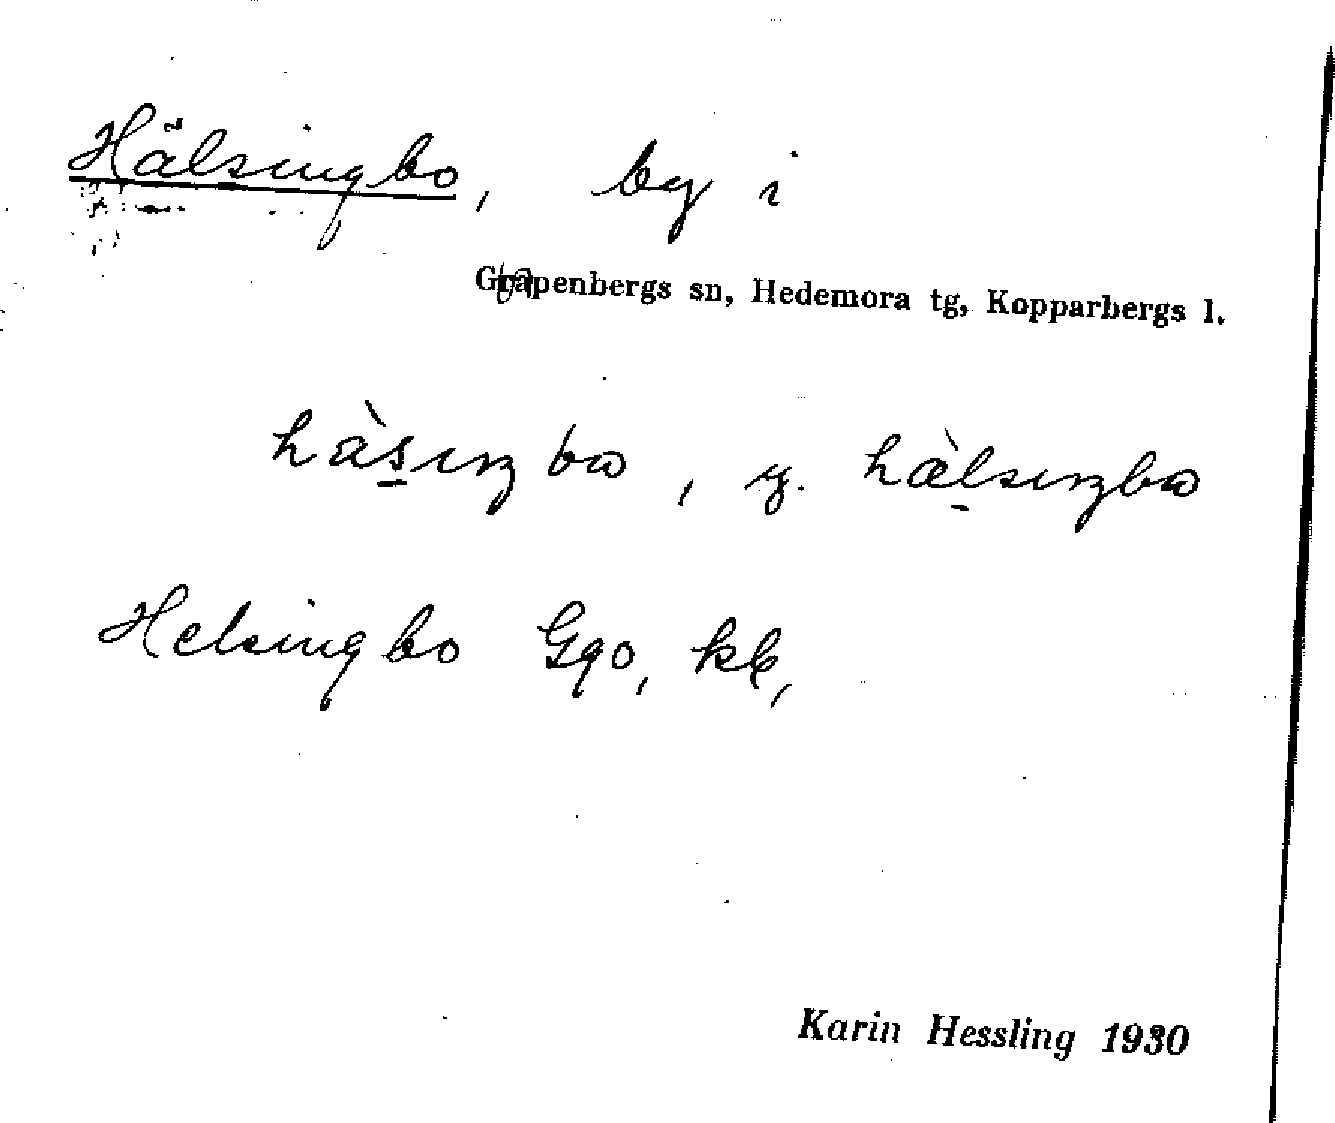 Hälsingbo, by i
Garpenbergs sn, Hedemora tg, Kopparbergs l.
hàsıŋbω, y. hæ̀lsıŋbω
Helsingbo Gqo, kk,
Karin Hessling 1930